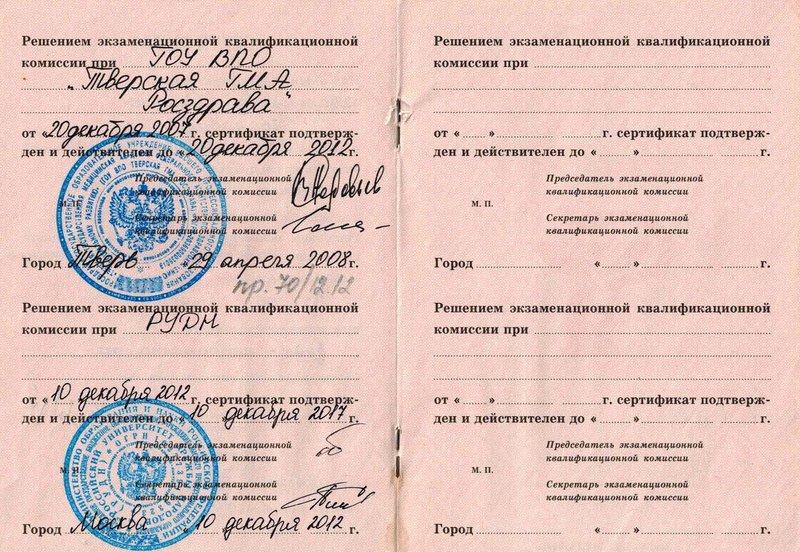 Решением экзаменационной квалификационной
комиссии при ГОУ ВПО
„Тверская ГМА
Росздрава“
от «20 декабря 2007 г. сертификат подтверж-
ден и действителен до «20 декабря 2012 г.
Председатель экзаменационной
квалификационной комиссии
М. П.
Секретарь экзаменационной
квалификационной комиссии
Город Тверь «29 апреля 2008 г.
пр. 70/12.12
Решением экзаменационной квалификационной
комиссии при РУДН
от «10 декабря 2012 г. сертификат подтверж-
ден и действителен до «10 декабря 2017 г.
Председатель экзаменационной
квалификационной комиссии
М. П.
Секретарь экзаменационной
квалификационной комиссии
Город Москва «10 декабря 2012 г.
Решением экзаменационной квалификационной
комиссии при
от « » г. сертификат подтверж-
ден и действителен до « » г.
Председатель экзаменационной
квалификационной комиссии
М. П.
Секретарь экзаменационной
квалификационной комиссии
Город « » г.
Решением экзаменационной квалификационной
комиссии при
от « » г. сертификат подтверж-
ден и действителен до « » г.
Председатель экзаменационной
квалификационной комиссии
М. П.
Секретарь экзаменационной
квалификационной комиссии
Город « » г.